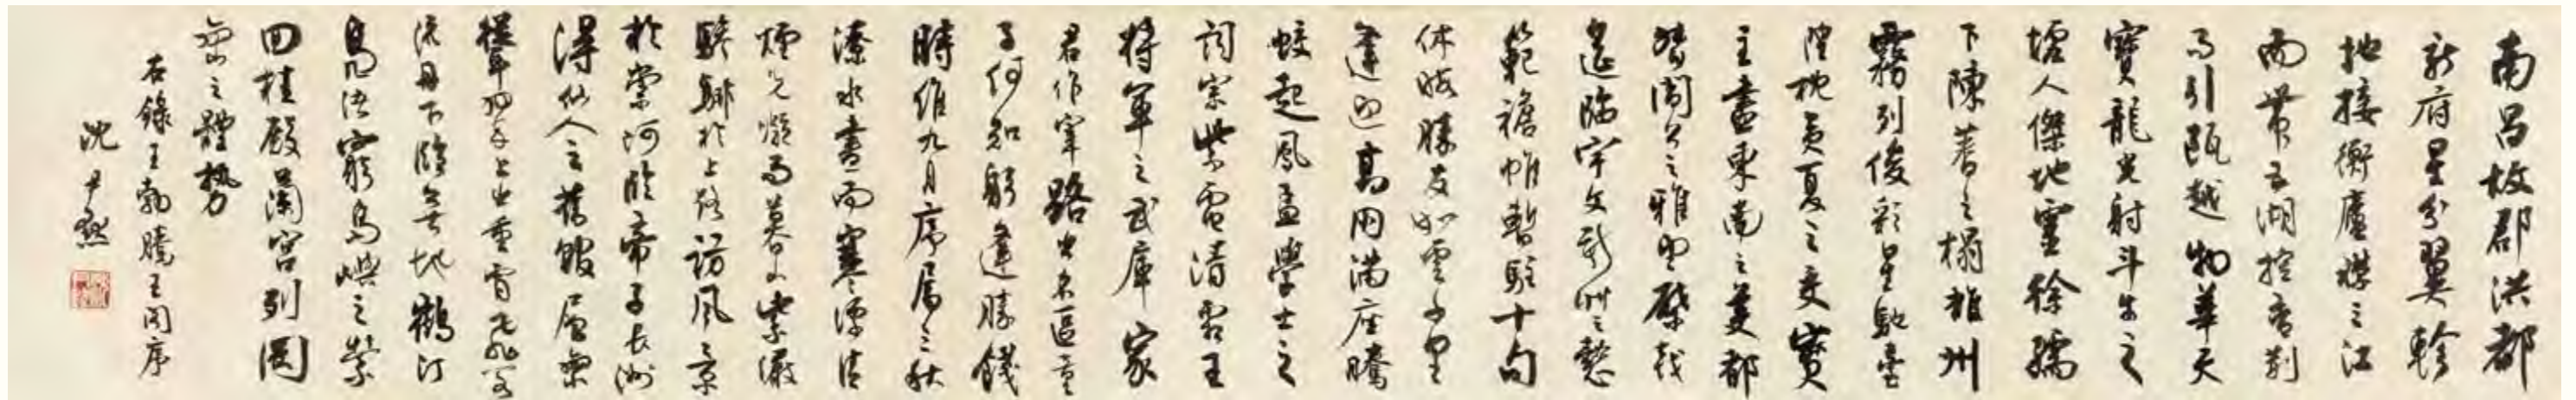 南昌故郡洪都
新府星分翼軫
地接衡廬襟三江
而帶五湖控蠻荊
而引甌越物華天
寶龍光射斗牛之
墟人傑地靈徐孺
下陳蕃之榻雄州
霧列俊彩星馳臺
隍枕夷夏之交賓
主盡東南之美都
督閻公之雅望棨戟
遙臨宇文新州之懿
範襜帷暫駐十旬
休暇勝友如雲千里
逢迎高朋滿座騰
蛟起鳳孟學士之
詞宗紫電清霜王
將軍之武庫家
君作宰路出名區童
子何知躬逢勝餞
時維九月序屬三秋
潦水盡而寒潭清
煙光凝而暮山紫儼
驂騑於上路訪風景
於崇阿臨帝子長洲
得仙人之舊館層巒
聳翠上出重霄飛閣
流丹下臨無地鶴汀
鳧渚窮島嶼之縈
回桂殿蘭宮列岡
巒之體勢
右錄王勃滕王閣序
沈尹默